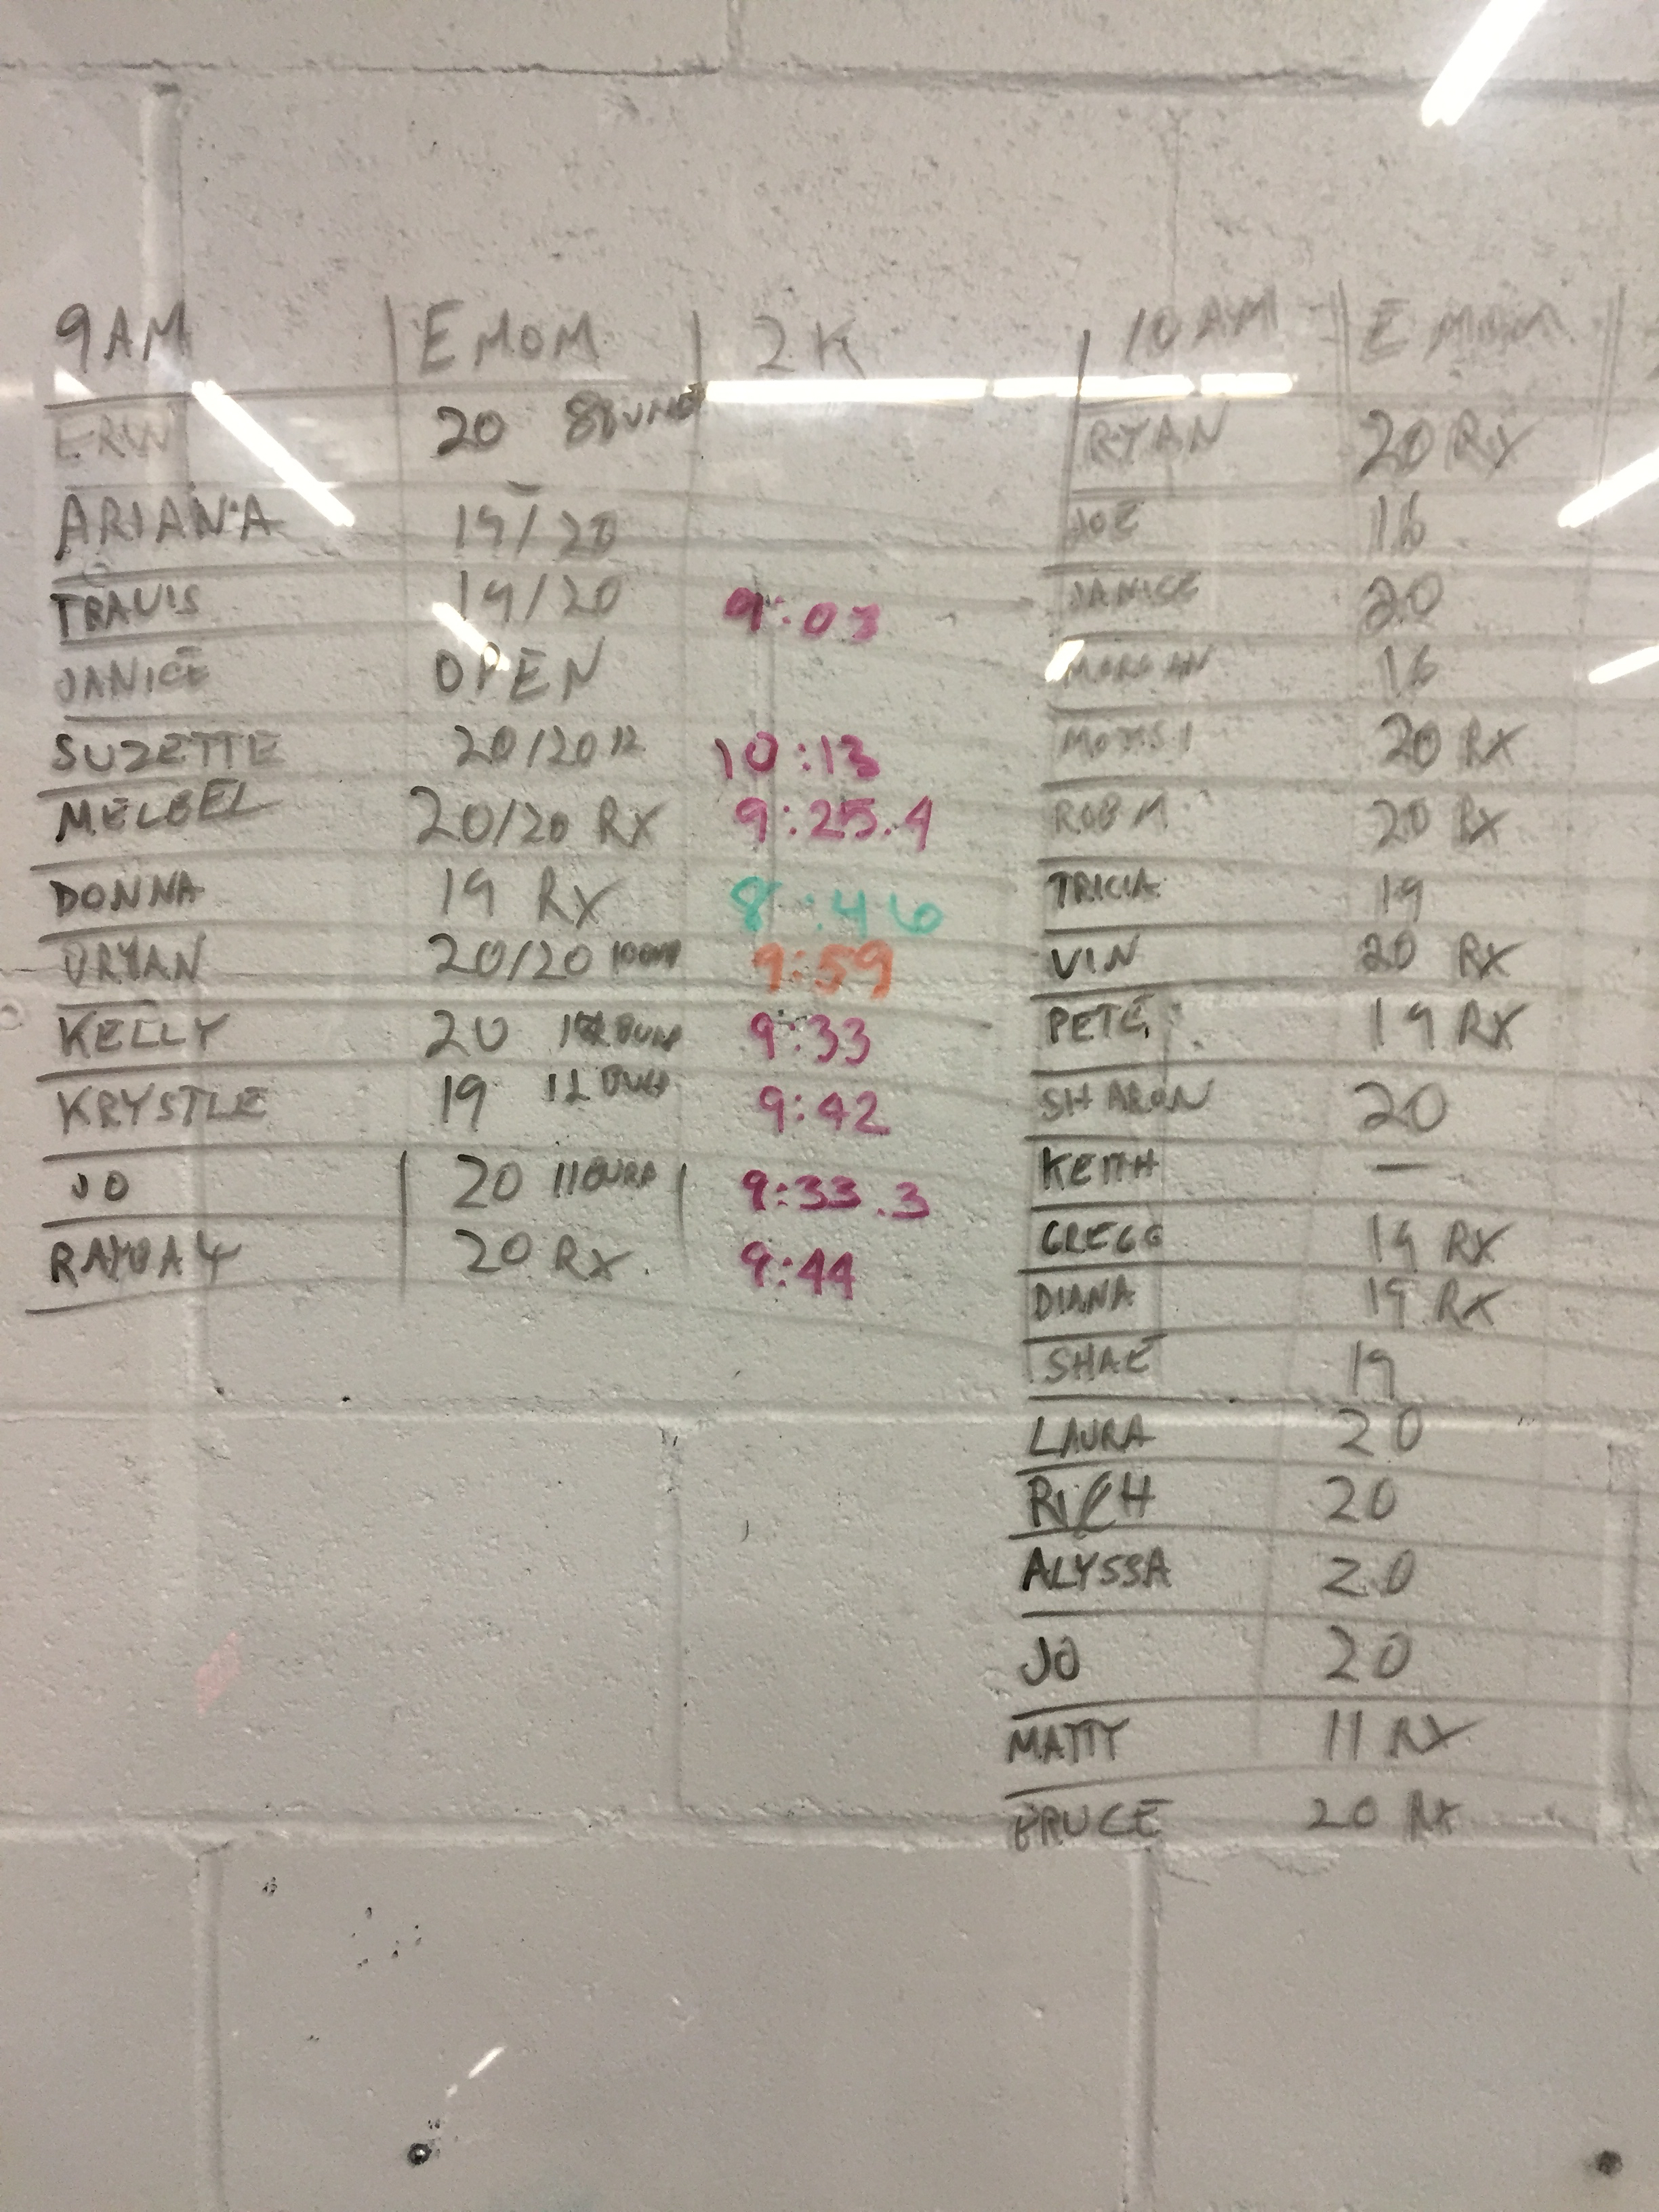 9AM EMOM 2K
ERIN 20
ARIANA 19/20
TRAVIS 19/20 9:03
JANICE OPEN
SUZETTE 20/20 12 10:13
MELBEL 20/20 RX 9:25.4
DONNA 19 RX 8:46
20/20 9:59
KELLY 20 9:33
KRYSTLE 19 9:42
JO 20 9:33.3
20 RX 9:44
10 AM EMOM
RYAN 20 RX
JOE 16
JANICE 20
MORGAN 16
20 RX
ROB M 20 RX
TRICIA 19
VIN 20 RX
PETE 19 RX
SHARON 20
KEITH —
GREGG 19 RX
DIANA 19 RX
SHAE 19
LAURA 20
RICH 20
ALYSSA 20
JO 20
MATTY 11 RX
BRUCE 20 RX